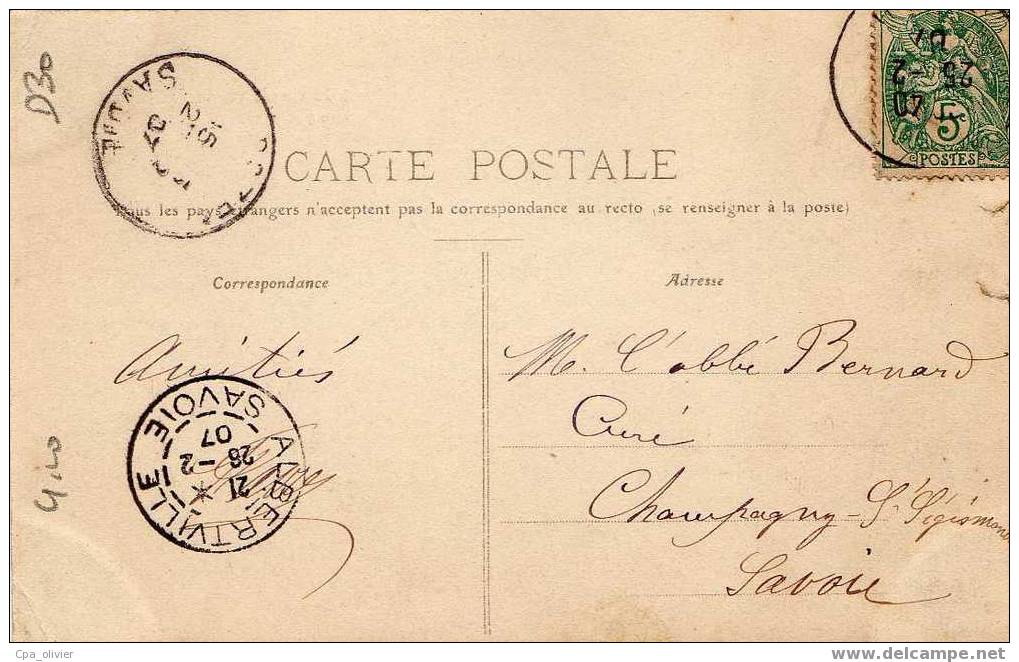 D30
SAVOIE
15
2
07
25 -2
07
5
POSTES
CARTE POSTALE
Tous les pays étrangers n'acceptent pas la correspondance au recto (se renseigner à la poste)
Correspondance
Adresse
Amitiés
M. l'abbé Bernard
Curé
Champagny-St Sigismond
Savoie
ALBERTVILLE
SAVOIE
21
26 -2
07
Cpa_olivier
www.delcampe.net